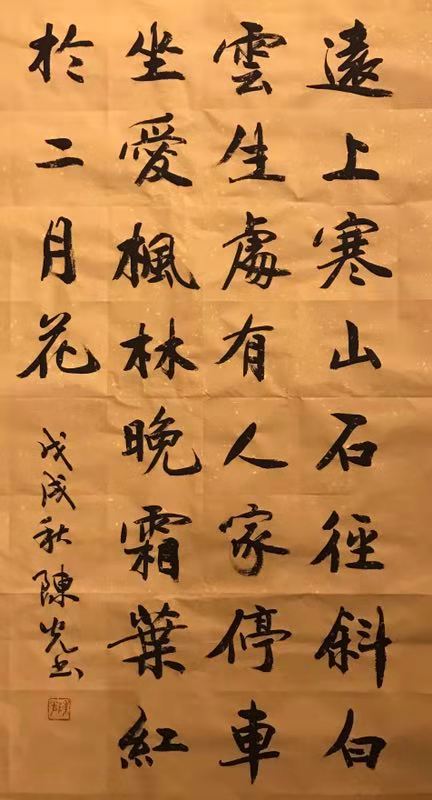 遠上寒山石徑斜白
雲生處有人家停車
坐愛楓林晚霜葉紅
於二月花
戊戌秋陳光书